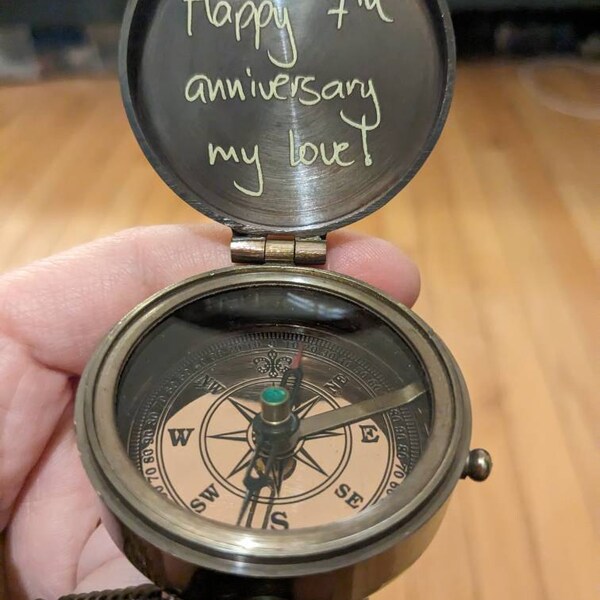 Happy 7th
anniversary
my love!
NW
NE
W
E
SW
SE
S